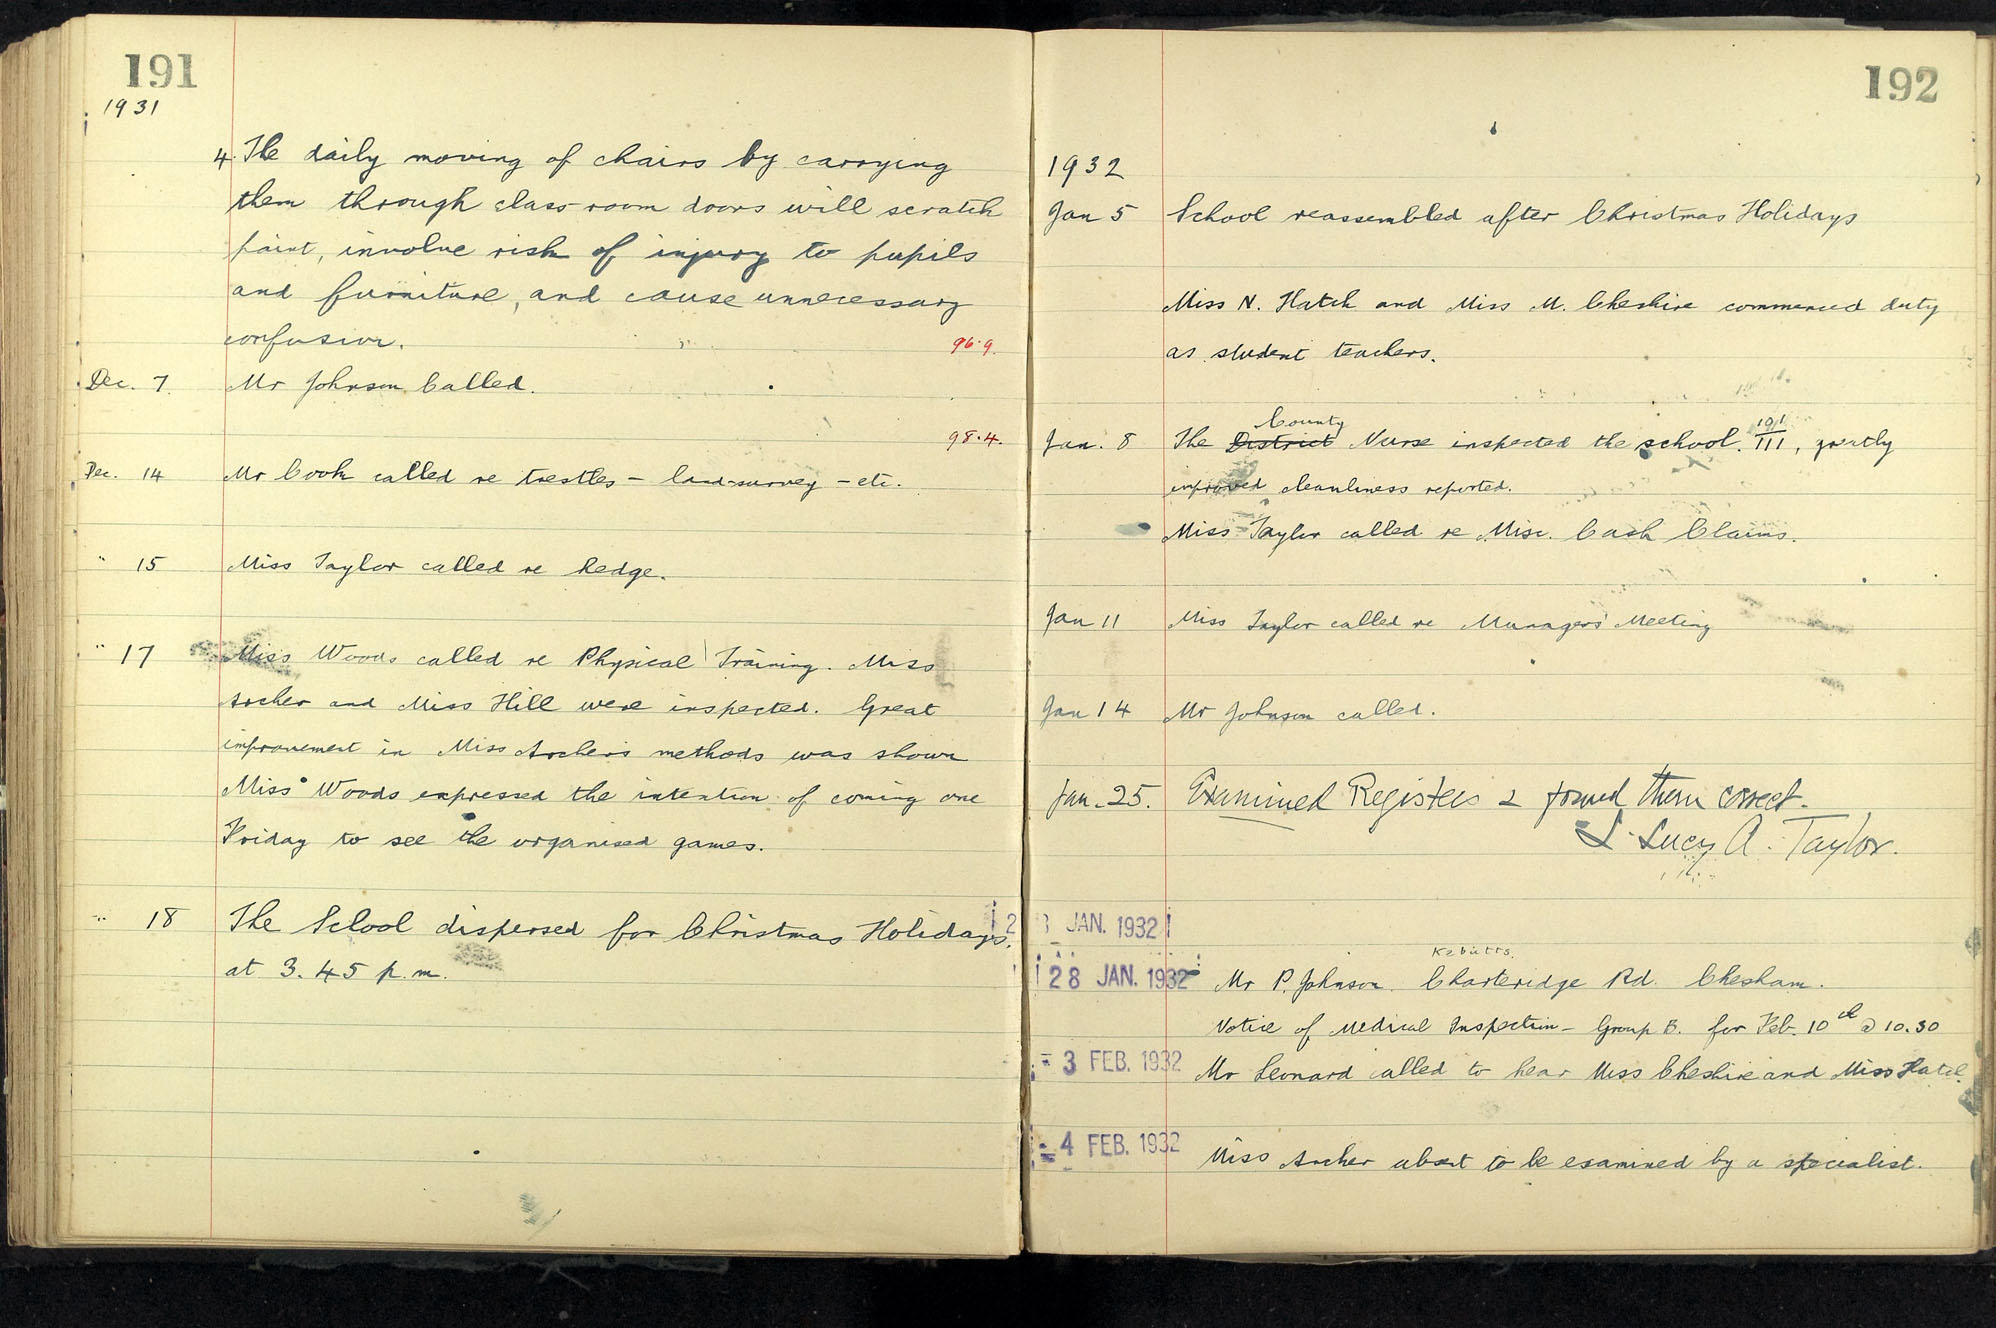 191
1931
4. The daily moving of chairs by carrying
them through class-room doors will scratch
paint, involve risk of injury to pupils
and furniture, and cause unnecessary
confusion.
96.9.
Dec. 7. Mr Johnson Called.
98.4.
Dec. 14 Mr Cook called re trestles – land-survey – etc.
" 15 Miss Taylor called re hedge.
" 17 Miss Woods called re Physical Training. Miss
Archer and Miss Hill were inspected. Great
improvement in Miss Archer's methods was shown
Miss Woods expressed the intention of coming one
Friday to see the organised games.
" 18 The School dispersed for Christmas Holidays.
at 3.45 p.m.
192
1932
Jan 5 School reassembled after Christmas Holidays
Miss N. Hatch and Miss M. Cheshire commenced duty
as student teachers.
County
Jan. 8 The District Nurse inspected the school. 101/111, greatly
improved cleanliness reported.
Miss Taylor called re Misc. Cash Claims.
Jan 11 Miss Taylor called re Managers' Meeting
Jan 14 Mr Johnson called.
Jan. 25. Examined Registers & found them correct.
L. Lucy A. Taylor.
2 8 JAN. 1932
28 JAN. 1932 Mr P. Johnson. Charteridge Rd. Chesham.
Notice of Medical Inspection – Group B. for Feb. 10th @ 10.30
- 3 FEB. 1932 Mr Leonard called to hear Miss Cheshire and Miss Hatch.
- 4 FEB. 1932 Miss Archer absent to be examined by a specialist.